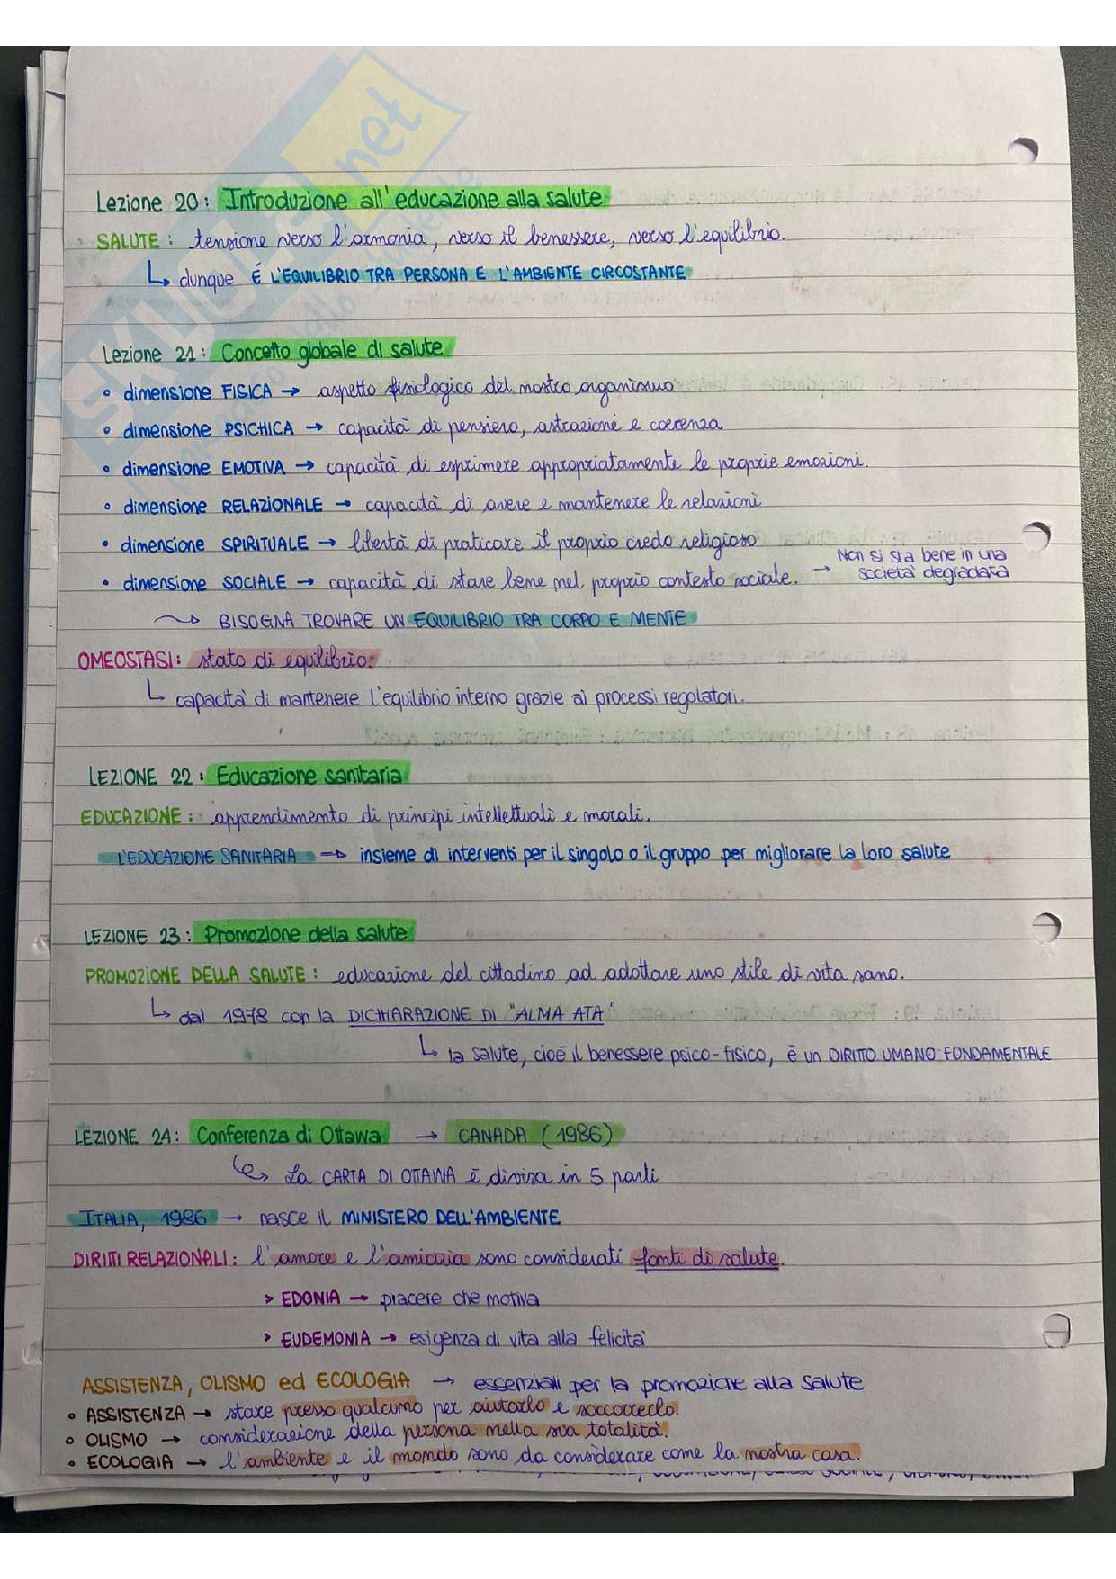 Lezione 20: Introduzione all'educazione alla salute
SALUTE: tensione verso l'armonia, verso il benessere, verso l'equilibrio.
↳ dunque È L'EQUILIBRIO TRA PERSONA E L'AMBIENTE CIRCOSTANTE
Lezione 21: Concetto globale di salute
• dimensione FISICA → aspetto fisiologico del nostro organismo
• dimensione PSICHICA → capacità di pensiero, astrazione e coerenza
• dimensione EMOTIVA → capacità di esprimere appropriatamente le proprie emozioni.
• dimensione RELAZIONALE → capacità di avere e mantenere le relazioni
• dimensione SPIRITUALE → libertà di praticare il proprio credo religioso
• dimensione SOCIALE → capacità di stare bene nel proprio contesto sociale. → Non si sta bene in una
società degradata
⤳ BISOGNA TROVARE UN EQUILIBRIO TRA CORPO E MENTE
OMEOSTASI: stato di equilibrio:
↳ capacità di mantenere l'equilibrio interno grazie ai processi regolatori.
LEZIONE 22: Educazione sanitaria
EDUCAZIONE: apprendimento di principi intellettuali e morali.
L'EDUCAZIONE SANITARIA → insieme di interventi per il singolo o il gruppo per migliorare la loro salute
LEZIONE 23: Promozione della salute
PROMOZIONE DELLA SALUTE: educazione del cittadino ad adottare uno stile di vita sano.
↳ dal 1978 con la DICHIARAZIONE DI "ALMA ATA"
↳ la salute, cioè il benessere psico-fisico, è un DIRITTO UMANO FONDAMENTALE
LEZIONE 24: Conferenza di Ottawa → CANADA (1986)
↳ La CARTA DI OTTAWA è divisa in 5 parti
ITALIA, 1986 → nasce il MINISTERO DELL'AMBIENTE
DIRITTI RELAZIONALI: l'amore e l'amicizia sono considerati fonti di salute.
> EDONIA → piacere che motiva
> EUDEMONIA → esigenza di vita alla felicità
ASSISTENZA, OLISMO ed ECOLOGIA → essenziali per la promozione alla salute
• ASSISTENZA → stare presso qualcuno per aiutarlo e soccorrerlo.
• OLISMO → considerazione della persona nella sua totalità.
• ECOLOGIA → l'ambiente e il mondo sono da considerare come la nostra casa.